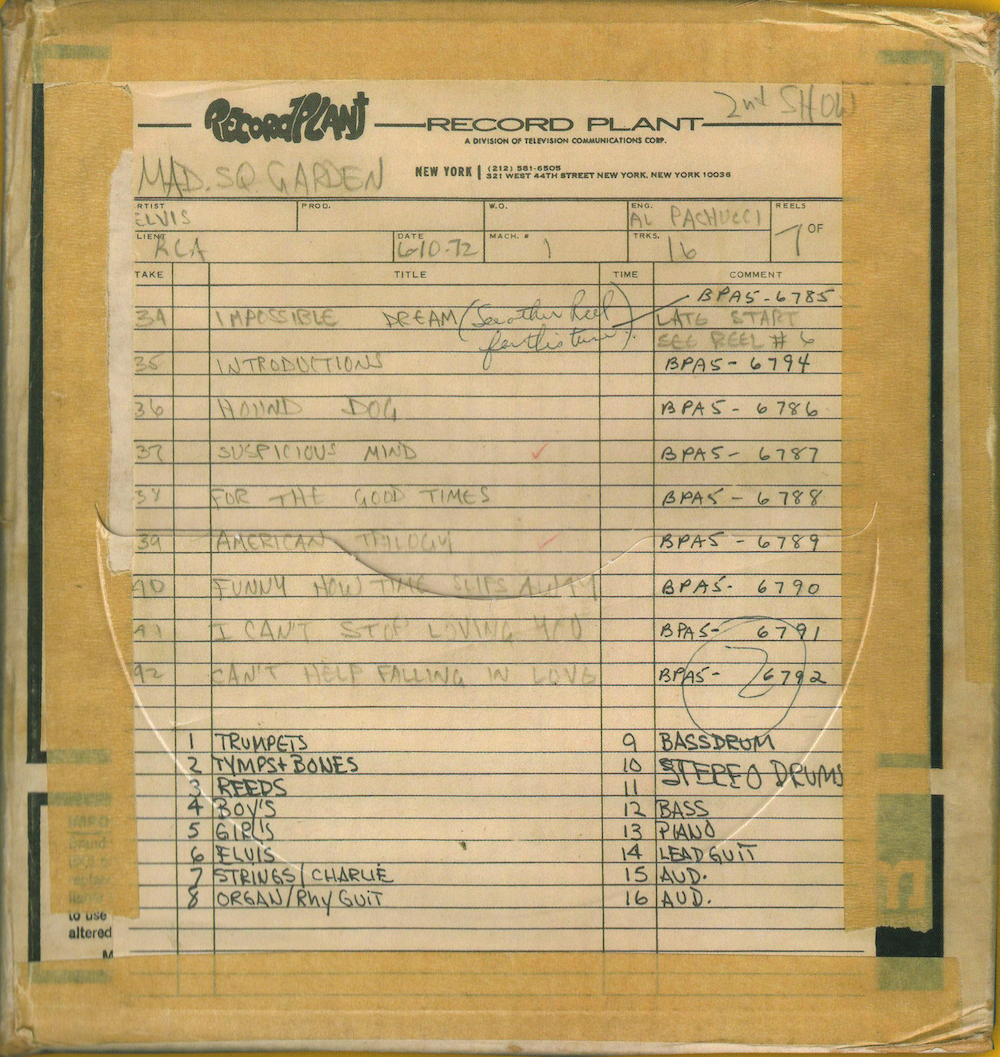 2nd SHOW
RECORD PLANT RECORD PLANT
A DIVISION OF TELEVISION COMMUNICATIONS CORP.
MAD. SQ. GARDEN
NEW YORK (212) 581-6505
321 WEST 44TH STREET NEW YORK, NEW YORK 10036
RTIST PROD. W.O. ENG. REELS
ELVIS AL PACHUCCI 7 OF
LIENT DATE MACH. # TRKS.
RCA 6-10-72 1 16
TAKE TITLE TIME COMMENT
BPA5-6785
34 IMPOSSIBLE DREAM (See other Reel LATE START
for this tune). SEE REEL # 6
35 INTRODUCTIONS BPA5- 6794
36 HOUND DOG BPA5 - 6786
37 SUSPICIOUS MIND ✓ BPA5- 6787
38 FOR THE GOOD TIMES BPA5 - 6788
39 AMERICAN TRILOGY ✓ BPA5 - 6789
40 FUNNY HOW TIME SLIPS AWAY BPA5- 6790
41 I CAN'T STOP LOVING YOU BPA5- 6791
42 CAN'T HELP FALLING IN LOVE BPA5- 6792
2
1 TRUMPETS 9 BASSDRUM
2 TYMPS + BONES 10 STEREO DRUMS
3 REEDS 11
4 BOY'S 12 BASS
5 GIRL'S 13 PIANO
6 ELVIS 14 LEAD GUIT
7 STRINGS/CHARLIE 15 AUD.
8 ORGAN/Rhy GUIT 16 AUD.
to use
altered
M